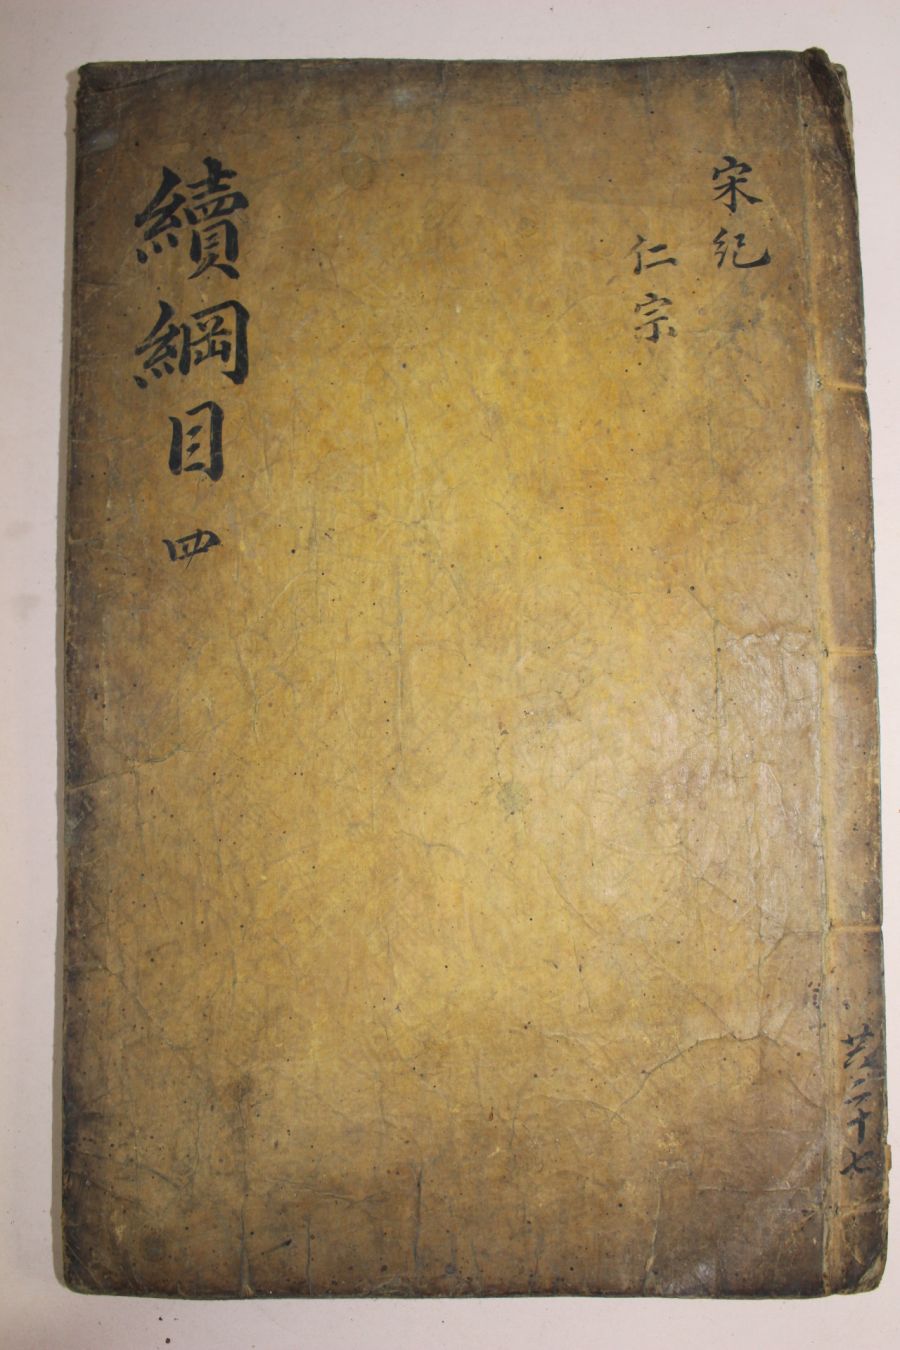 宋紀
仁宗
共二十七
續綱目 四